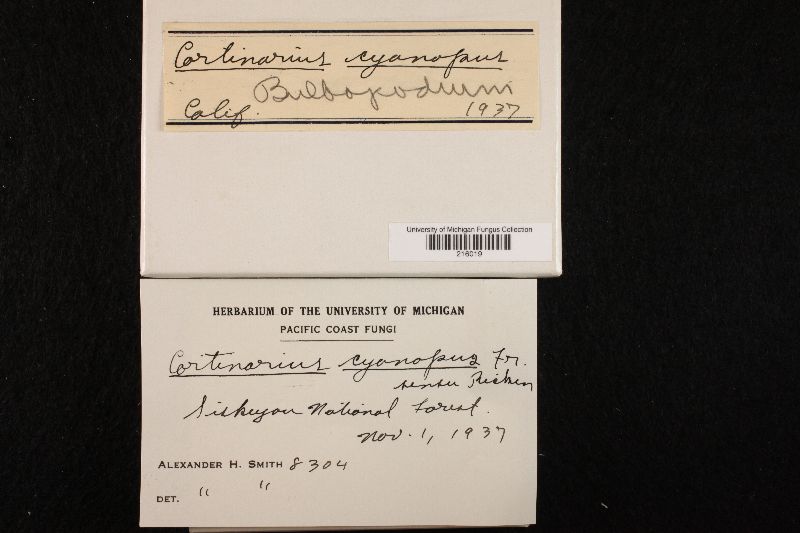 Cortinarius cyanopus
Bulbopodium
Calif. 1937
University of Michigan Fungus Collection
216019
HERBARIUM OF THE UNIVERSITY OF MICHIGAN
PACIFIC COAST FUNGI
Cortinarius cyanopus Fr.
sensu Ricken
Siskiyou National Forest.
Nov. 1, 1937
ALEXANDER H. SMITH 8304
DET. " "